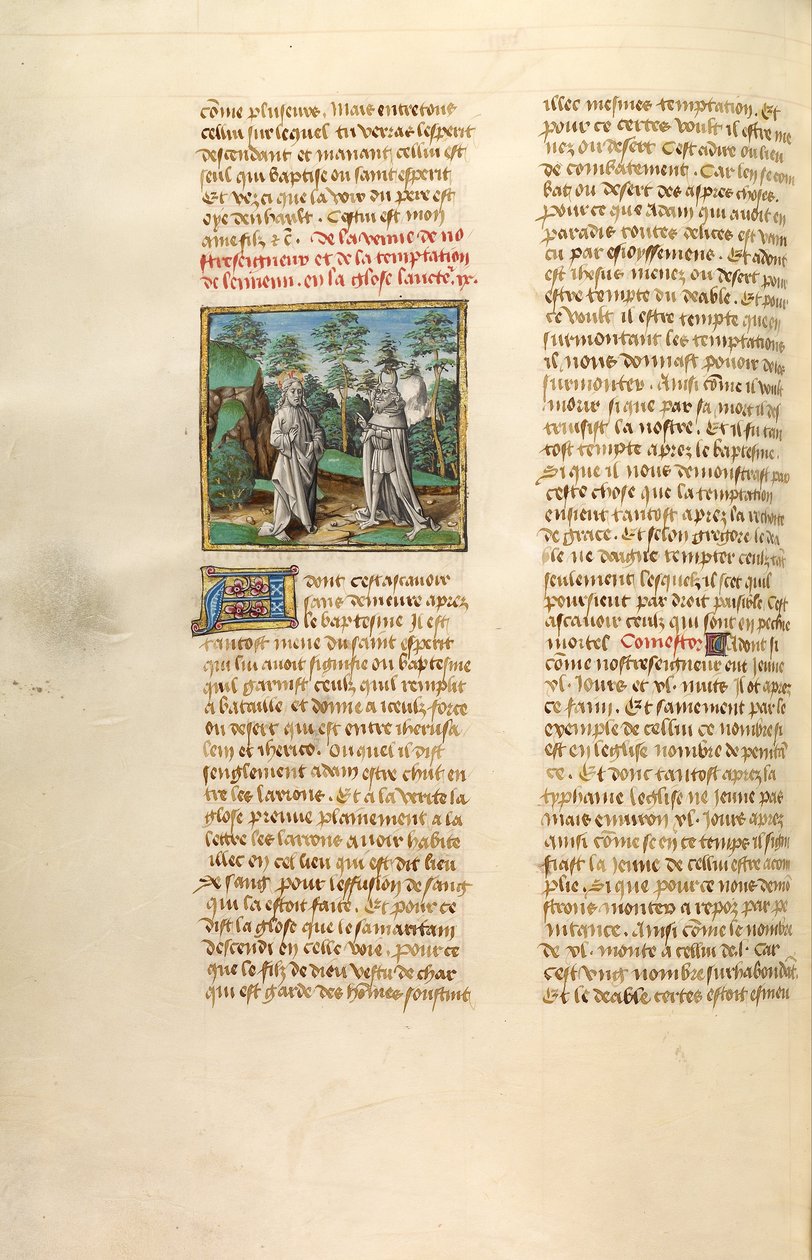 cõme pluseurs. Mais entre tous
cellui sur lequel tu verras lesperit
descendant et manant cellui est
seul qui baptise ou saint esperit
Et vezci que la voix du pere est
oye denhault. Cestui est mon
ame filz ⁊ c̃. De la venue de no
streseigneur et de la temptation
de lennemi. en la glose
dont cest ascavoir
sans demeure aprez
le baptesme Il est
tantost mene du saint esperit
qui lui avoit signifie ou baptesme
quil garnist ceulz quil remplit
a bataille et donne a iceulz force
ou desert qui est entre iherusa
lem et iherico. Ou quel il dist
senglement adam estre chut en
tre les larrons. Et a la verite la
glose preuve plainement a la
lettre les larrons avoir habite
illec en cel lieu qui est dit lieu
de sang pour leffusion de sang
qui la estoit faite. Et pour ce
dist la glose que le samaritain
descendi en celle voie. pour ce
que le filz de dieu vestu de char
qui est garde des hõmes soustint
illec mesmes temptation. Et
pour ce certes voult il estre me
nez ou desert Cest adire ou lieu
de combatement. Car len se com
bat ou desert des aspres choses.
pour ce que Adam qui avoit en
paradis toutes delices est vain
cu par esioyssemens. Et adont
est ihesus menez ou desert pour
estre tempte du deable. Et pour
ce voult il estre tempte que en
surmontant les temptations
il nous donnast povoir de les
surmonter. Ainsi cõme il voult
morir si que par sa mort il des
truisist la nostre. Et il fu tan
tost tempte aprez le baptesme.
Si que il nous demonstrast par
ceste chose que la temptation
ensient tantost aprez la
de grace. Et selon gregore le dea
ble ne daigne tempter ceulz tãt
seulement lesquelz il scet quil
poursient par droit paisible Cest
ascavoir ceulz qui sont en pechie
mortel Comestor Adont si
cõme nostreseigneur eut Jeune
xl. Jours et xl. nuits Il ot aprez
ce faim. Et sainement par le
exemple de cellui ce nombre si
est en leglise nombre de penitã
ce. Et donc tantost aprez la
typhaine leglise ne Jeune pas
mais environ xl. Jours aprez
ainsi cõme se en ce temps il signi
fiast la Jeune de cellui estre acom
plie. Si que pour ce nous demõ
strons monter a repoz par pe
nitance. Ainsi cõme le nombre
de xl. monte a cellui de .l. Car
cest ung nombre surhabondãt.
Et le deable certes estoit esmeu